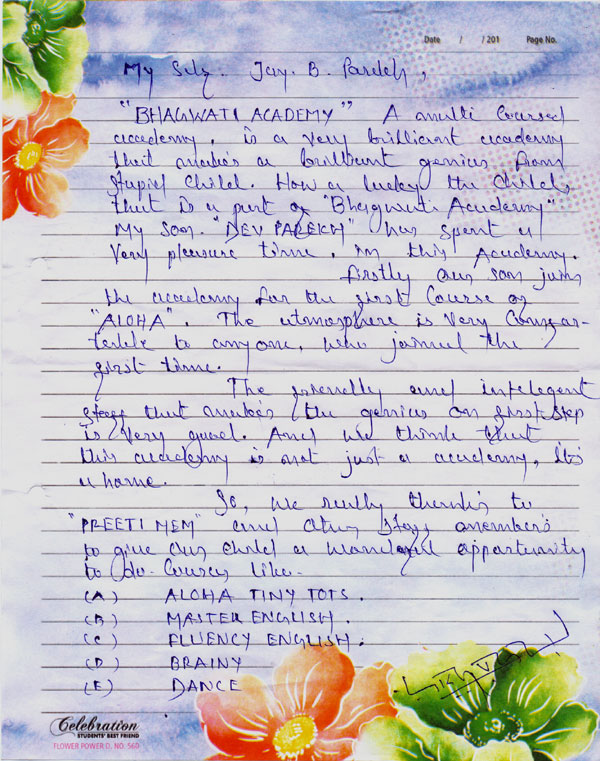 Date / / 201 Page No.
My Self. Jay. B. Parekh,
"BHAGWATI ACADEMY" A multi Coursed
academy, is a very brilliant academy
that makes a brilliant genius from
stupid child. How a lucky the child,
that is a part of "Bhagwati Academy"
My son. "DEV PAREKH" has spent a
very pleasure time, in this Academy.
firstly our son join
the academy for the first Course of
"ALOHA". The atmosphere is very Comfor-
teble to anyone, who joined the
first time.
The friendly and intelegent
staff that makes the genius on first step
is very good. And we think that
this academy is not just a academy, Its
a home.
So, we really thank's to
"PREETI MEM" and other staff member's
to give our child a wonderful opportunity
to do Courses like-
(A) ALOHA TINY TOTS.
(B) MASTER ENGLISH.
(C) FLUENCY ENGLISH.
(D) BRAINY
(E) DANCE
Celebration
STUDENTS' BEST FRIEND
FLOWER POWER D. NO. 560